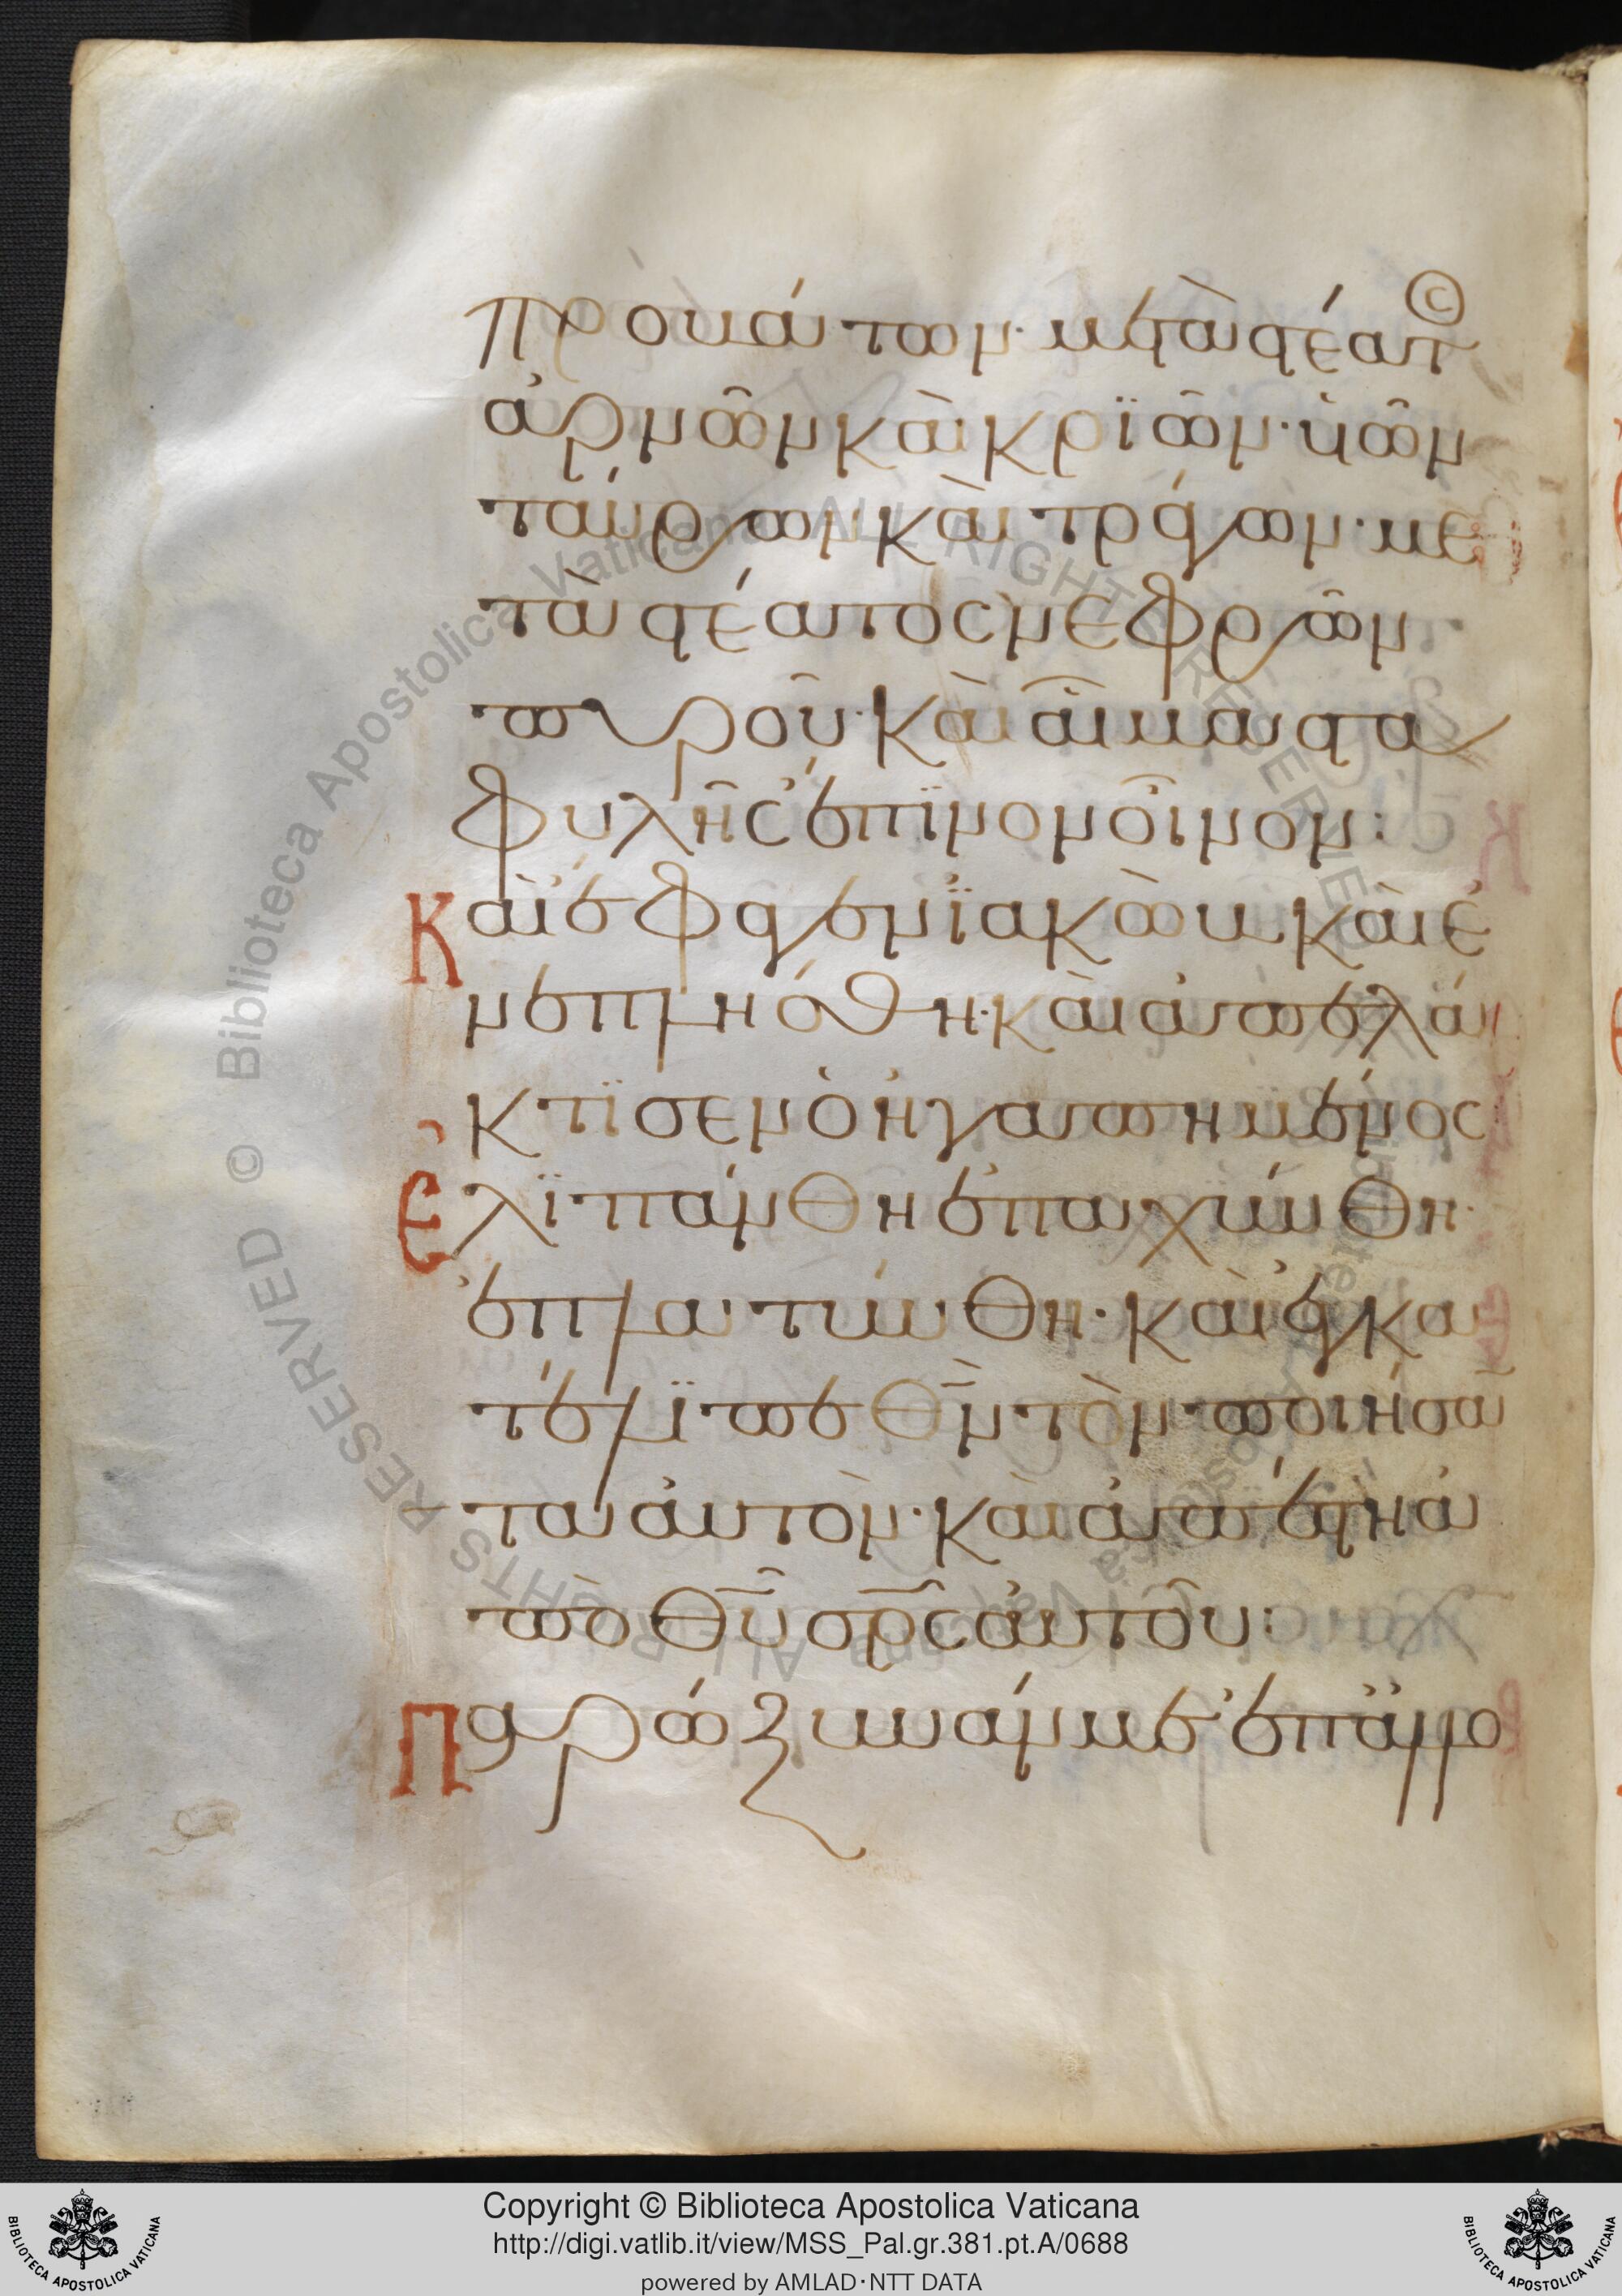 προβάτων· μετὰ στέατ(ος)
ἀρνῶν καὶ κριῶν· ὑϊῶν
ταύρων καὶ τράγων· με
τὰ στέατος νεφρῶν
πυροῦ· καὶ αἷμα στα
φυλῆς ἔπϊνον οἶνον:
Καὶ ἔφαγεν ϊακὼβ καὶ ἐ
νεπλήσθη· καὶ ἀπελά
κτϊσεν ὁ ἠγαπημένος
Ἐλϊπάνθη ἐπαχύνθη·
ἐπλατύνθη· καὶ ἐγκα
τέλϊπε θν τὸν ποιήσαν
τα αὐτὸν· καὶ ἀπέστη ἀ
πὸ θυ σρς αὐτοῦ:
Παρώξυνάν με ἐπ' ἀλλο
Copyright © Biblioteca Apostolica Vaticana
http://digi.vatlib.it/view/MSS_Pal.gr.381.pt.A/0688
powered by AMLAD·NTT DATA
BIBLIOTECA APOSTOLICA VATICANA
BIBLIOTECA APOSTOLICA VATICANA
© Biblioteca Apostolica Vaticana ALL RIGHTS RESERVED